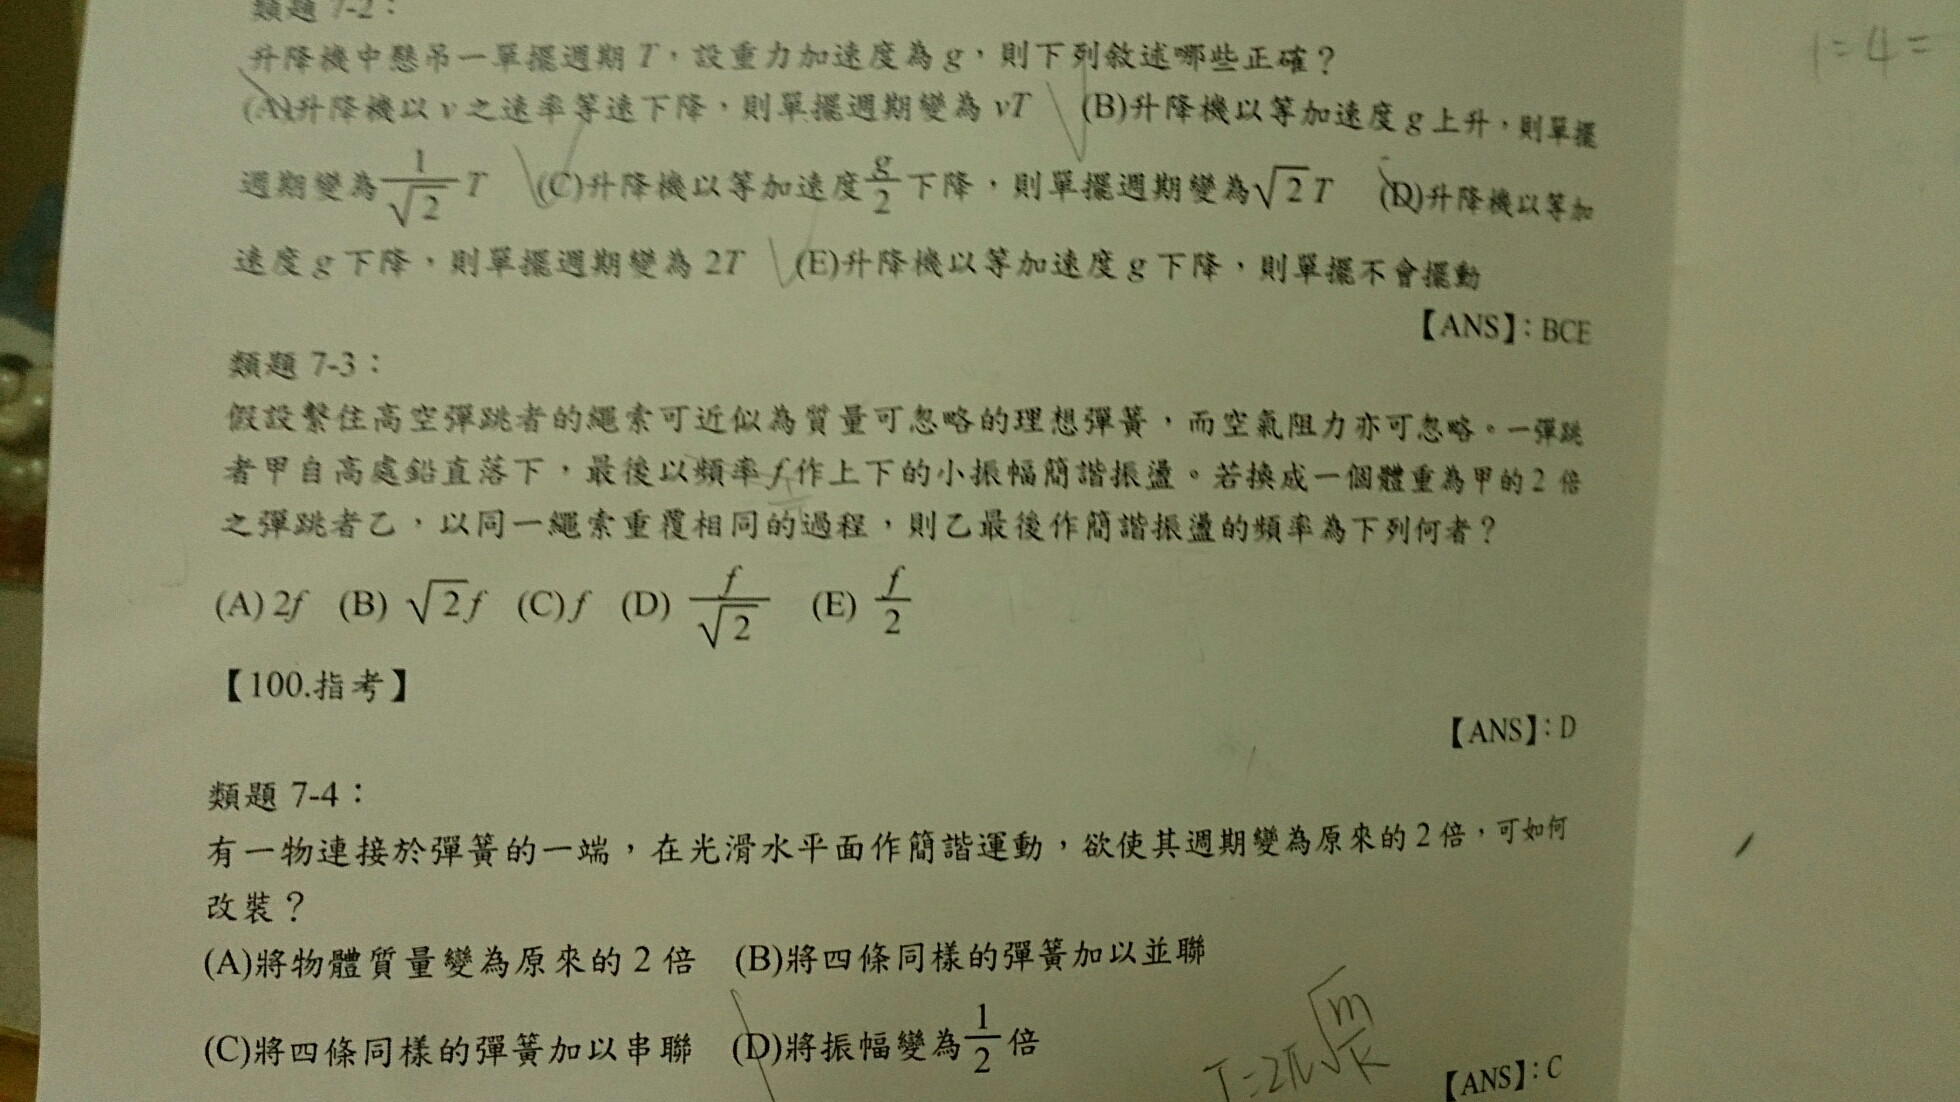 類題 7-2：
1=4=
升降機中懸吊一單擺週期 T，設重力加速度為 g，則下列敘述哪些正確？
(A)升降機以 v 之速率等速下降，則單擺週期變為 vT (B)升降機以等加速度 g 上升，則單擺
週期變為 1/√2 T (C)升降機以等加速度 g/2 下降，則單擺週期變為 √2 T (D)升降機以等加
速度 g 下降，則單擺週期變為 2T (E)升降機以等加速度 g 下降，則單擺不會擺動
【ANS】：BCE
類題 7-3：
假設繫住高空彈跳者的繩索可近似為質量可忽略的理想彈簧，而空氣阻力亦可忽略。一彈跳
者甲自高處鉛直落下，最後以頻率 f 作上下的小振幅簡諧振盪。若換成一個體重為甲的 2 倍
之彈跳者乙，以同一繩索重覆相同的過程，則乙最後作簡諧振盪的頻率為下列何者？
(A) 2f (B) √2 f (C) f (D) f/√2 (E) f/2
【100.指考】
【ANS】：D
類題 7-4：
有一物連接於彈簧的一端，在光滑水平面作簡諧運動，欲使其週期變為原來的 2 倍，可如何
改裝？
(A)將物體質量變為原來的 2 倍 (B)將四條同樣的彈簧加以並聯
(C)將四條同樣的彈簧加以串聯 (D)將振幅變為 1/2 倍
T=2π√m/K
【ANS】：C